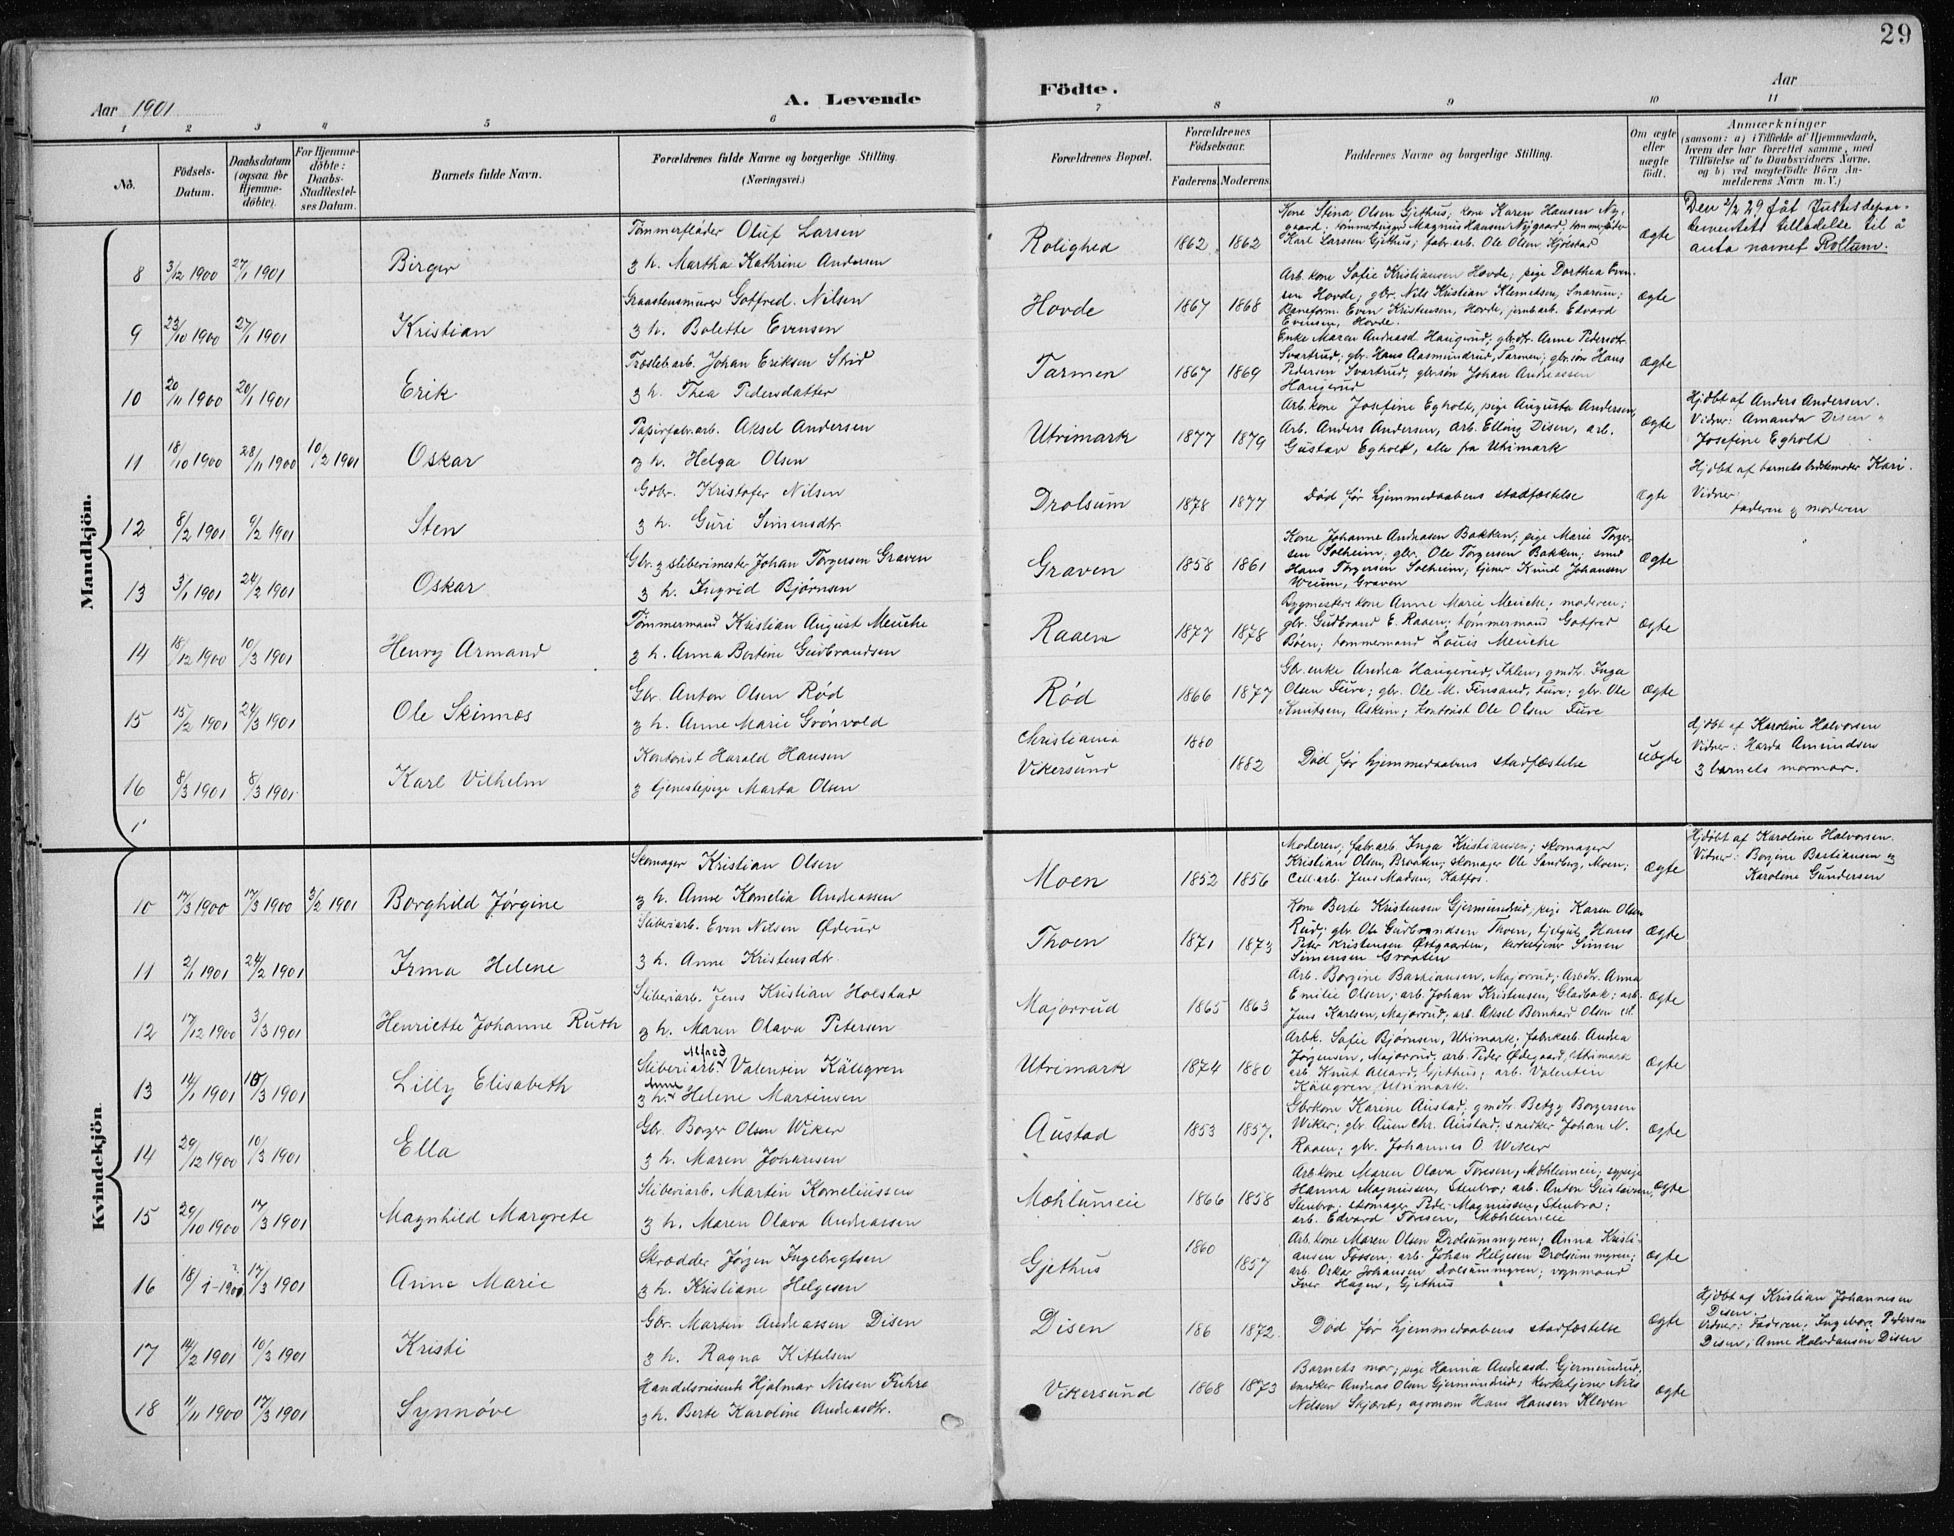 29
Aar 1901
A. Levende
Födte.
Aar
1 2 3 4 5 6 7 8 9 10 11
No.
Födsels-Datum.
Daabsdatum (ogsaa for Hjemmedöbte).
For Hjemmedöbte: Daabs-Stadfæstelses Datum.
Barnets fulde Navn.
Forældrenes fulde Navne og borgerlige Stilling. (Næringsvei.)
Forældrenes Bopæl.
Forældrenes Födselsaar.
Faderens. Moderens.
Faddernes Navne og borgerlige Stilling.
Om ægte eller uægte födt.
Anmærkninger
(saasom: a) i Tilfælde af Hjemmedaab, hvem der har forrettet samme, med Tilföielse af to Daabsvidners Navne, og b) ved uægtefödte Börn Anmelderens Navn m. V.)
Mandkjön.
8 3/12 1900 27/1 1901 Birger
Tømmerfløder Oluf Larsen
& h. Martha Kathrine Andersen
Rolighed 1862 1862
Kone Stina Olsen Gjethus; kone Karen Hansen Nygaard; tømmerhugger Magnus Hansen Nygaard, tømmerfløder
Karl Larsen Gjethus; fabr.arb. Ole Olsen Kjølstad
Ægte
Den 2/2 29 fåt Justisdepartementets tilladelse til å anta navnet Roltum.
9 23/10 1900 27/1 1901 Kristian
Graastensmurer Gotfred Nilsen
& h. Bolette Evensen
Hovde 1867 1868
Arb. kone Sofie Kristiansen Hovde; pige Dorthea Evensen Hovde; gbr. Nils Kristian Klemetsen, Snarum;
Baneform. Even Kristensen, Hovde, jernb.arb. Edvard
Evensen, Hovde.
Ægte
10 20/11 1900 20/1 1901 Erik
Træsleb.arb. Johan Eriksen Strid
& h. Thea Pedersdatter
Tarmen 1867 1869
Enke Maren Andreasd. Haugerud; gbr.dtr. Anne Pedersdtr.
Svartrud; gbr. Hans Aasmundrud, Tarmen; gbr.søn Hans
Pedersen Svartrud; gbr.søn Johan Andreassen
Haugerud
Ægte
11 18/10 1900 28/11 1900 10/2 1901 Oskar
Papirfabr.arb. Aksel Andersen
& h. Helga Olsen
Utrimark 1877 1879
Arb. kone Josefine Egholt, pige Augusta Andersen,
Arb. Anders Andersen, Arb. Elling Disen, arb.
Gustav Egholt, alle fra Utrimark
Ægte
Hjdøbt af Anders Andersen.
Vidner: Amanda Disen
Josefine Egholt
12 8/2 1901 9/2 1901 Sten
Gbr. Kristofer Nilsen
& h. Guri Simensdtr.
Drolsum 1878 1877
Død før hjemmedaabens stadfæstelse
Ægte
Hjdøbt af barnets bestemoder Kari.
Vidner:
faderen & moderen
13 3/1 1901 24/2 1901 Oskar
Gbr. & sliberimester Johan Torgersen Graven
& h. Ingrid Bjørnsen
Graven 1858 1861
Kone Johanne Andreasen Bakken; pige Marie Torgersen Solheim; gbr. Ole Torgersen Bakken; smed
Hans Torgersen Solheim; tjener Knud Johansen
Weum, Graven
Ægte
14 18/12 1900 10/3 1901 Henry Armand
Tømmermand Kristian August Meuche
& h. Anna Bertine Gudbrandsen
Raaen 1877 1878
Bygmesters kone Anne Marie Meuche; moderen;
gbr. Gudbrand E. Raaen; tømmermand Gotfred
Bøen; tømmermand Louis Meuche
Ægte
15 15/2 1901 24/3 1901 Ole Skinnes
Gbr. Anton Olsen Rød
& h. Anne Marie Grønvold
Rød 1866 1877
Gbr. enke Andrea Haugerud, Ihlen, gmdtr. Inga
Olsen Fure; gbr. Ole M. Finsand, Fure; gbr. Ole
Knutsen, Askim; kontorist Ole Olsen Fure
Ægte
16 8/3 1901 8/3 1901 Karl Vilhelm
Kontorist Harald Hansen
& tjenestepige Marta Olsen
Christiania 1880
Vikersund 1882
Død før hjemmedaabens stadfæstelse
uægte
Hjdøbt af Karoline Halvorsen
Vidner: Harda Amundsen
& barnets mormor.
Kvindekjön.
10 17/3 1900 17/3 1900 3/2 1901 Borghild Jørgine
Skomager Kristian Olsen
& h. Anne Kornelia Andreassen
Moen 1852 1856
Moderen; fabr.arb. Inga Kristiansen; skomager
Kristian Olsen, Braaten; skomager Ole Sandberg, Moen;
Cell.arb. Jens Madsen, Katfos.
Ægte
Hjdøbt af Karoline Halvorsen.
Vidner: Borgene Bastiansen &
Karoline Gundersen
11 2/1 1901 24/2 1901 Irma Helene
Sliberiarb. Even Nilsen Øderud
& h. Anne Kristensdtr.
Thoen 1871 1873
Kone Berte Kristensen Gjermundrud, pige Karen Olsen
Rud; gbr. Ole Gudbrandsen Thoen, Hans
Peter Kristensen Østgaarden, kirketjener Simen
Simensen Graaten
Ægte
12 17/12 1900 3/3 1901 Henriette Johanne Ruth
Sliberiarb. Jens Kristian Holstad
& h. Maren Olava Petersen
Majorrud 1865 1863
Arb. Borgine Bastiansen, Majorrud; Arbdtr. Anna
Emilie Olsen; arb. Johan Kristensen, Gladbak; arb.
Jens Karlsen, Majorrud; arb. Aksel Bernhard Olsen
Ægte
13 14/1 1901 10/3 1901 Lilly Elisabeth
Sliberiarb. Alfred Valentin Källgren
& h. Anne Helene Martinsen
Utrimark 1874 1880
Arbk. Sofie Bjørnsen, Utrimark; fabrikarb. Andrea
Jørgensen, Majorrud; arb. Peder Ødegaard, Utrimark
arb. Knut Allard, Gjethus; arb. Valentin
Källgren, Utrimark.
Ægte
14 29/12 1900 10/3 1901 Ella
Gbr. Borger Olsen Wiker
& h. Maren Johansen
Austad 1853 1857.
Gbrkone Karine Austad; gmdtr. Betzy Borgersen
Wiker; gbr. Auen Chr. Austad; snedker Johan N.
Raaen; gbr. Johannes O. Wiker
Ægte
15 29/10 1900 17/3 1901 Magnhild Margrete
Sliberiarb. Martin Korneliussen
& h. Maren Olava Andreassen
Mæhlumeie 1866 1858
Arbkone Maren Olava Toresen, Mæhlumeie; sypige
Hanna Magnussen, Stenbro; arb. Anton Gustavsen,
Stenbro; skomager Peder Magnussen, Stenbro;
arb. Edvard Toresen, Mæhlumeie
Ægte
16 18/1-1900? 17/3 1901 Anna Marie
Skrædder Jørgen Ingebregtsen
& h. Kristiane Helgesen
Gjethus 1860 1857
Arb. kone Maren Olsen Drolsummyren; Anna Kristiansen Fossen; arb. Johan Helgesen Drolsummyren;
arb. Oskar Johansen Drolsummyren; vognmand
Iver Hagen, Gjethus
Ægte
17 14/2 1901 10/3 1901 Kristi
Gbr. Martin Andreassen Disen
& h. Ragna Kittelsen
Disen 186 1872.
Død før hjemmedaabens stadfæstelse
Ægte
Hjdøbt af Kristian Johannesen
Disen.
Vidner: Faderen; Ingeborg Pedersen
Disen; Anne Halvdansen Disen
18 11/11 1900 17/3 1901 Synnøve
Handelsreisende Hjalmar Nilsen Fuhre
& h. Berte Karoline Andreasdtr.
Vikersund 1868 1873
Barnets mor; pige Hanna Andreasd. Gjermundrud,
snedker Andreas Olsen Gjermundrud; kirketjener Nils
Nilsen Skjæret; agronom Hans Hansen Kleven
Ægte